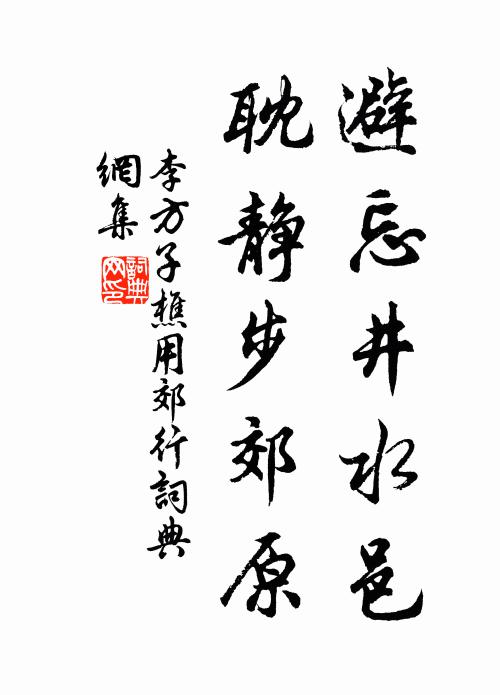 避忘井水邑
耽静步郊原
李方子樵用郊行詞典
網集
詞典網印